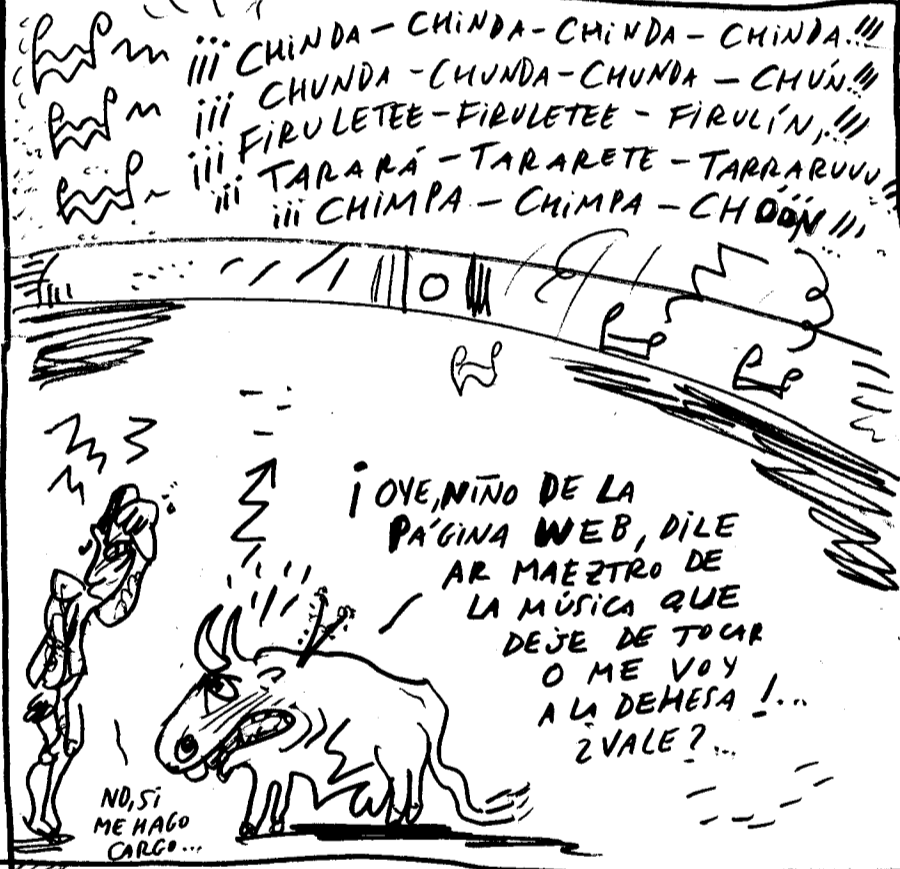 ¡¡¡ CHINDA - CHINDA - CHINDA - CHINDA!!!
¡¡¡ CHUNDA - CHUNDA - CHUNDA - CHÚN!!!
¡¡¡ FIRULETEE - FIRULETEE - FIRULÍN,!!!
¡¡¡ TARARÁ - TARARETE - TARRARUUU!!!
¡¡¡ CHIMPA - CHIMPA - CHOÓN!!!
¡OYE, NIÑO DE LA
PÁGINA WEB, DILE
AR MAEZTRO DE
LA MÚSICA QUE
DEJE DE TOCAR
O ME VOY
A LA DEHESA!...
¿VALE?...
NO, SI
ME HAGO
CARGO...